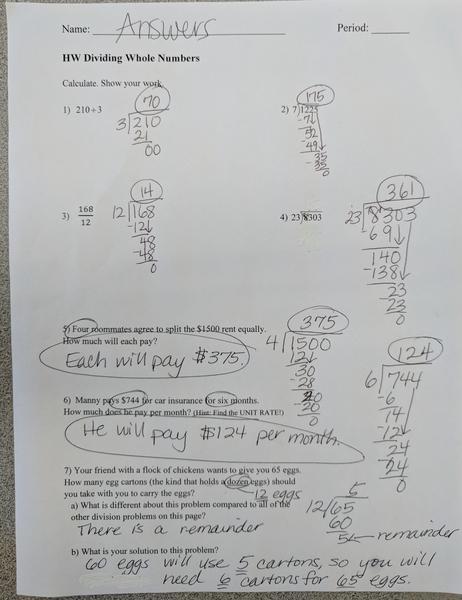 Name: Answers Period:
HW Dividing Whole Numbers
Calculate. Show your work.
1) 210÷3
70
3 210
21
00
2) 7 1225
175
-7
52
-49
35
-35
0
3) 168/12
14
12 168
-12
48
-48
0
4) 23 8303
361
23 8303
-69
140
-138
23
-23
0
5) Four roommates agree to split the $1500 rent equally.
How much will each pay?
Each will pay $375.
375
4 1500
12
30
-28
20
-20
0
6) Manny pays $744 for car insurance for six months.
How much does he pay per month? (Hint: Find the UNIT RATE!)
He will pay $124 per month.
124
6 744
-6
14
-12
24
-24
0
7) Your friend with a flock of chickens wants to give you 65 eggs.
How many egg cartons (the kind that holds a dozen eggs) should
you take with you to carry the eggs?
12 eggs
a) What is different about this problem compared to all of the
other division problems on this page?
There is a remainder
5
12 65
60
5 ← remainder
b) What is your solution to this problem?
60 eggs will use 5 cartons, so you will
need 6 cartons for 65 eggs.